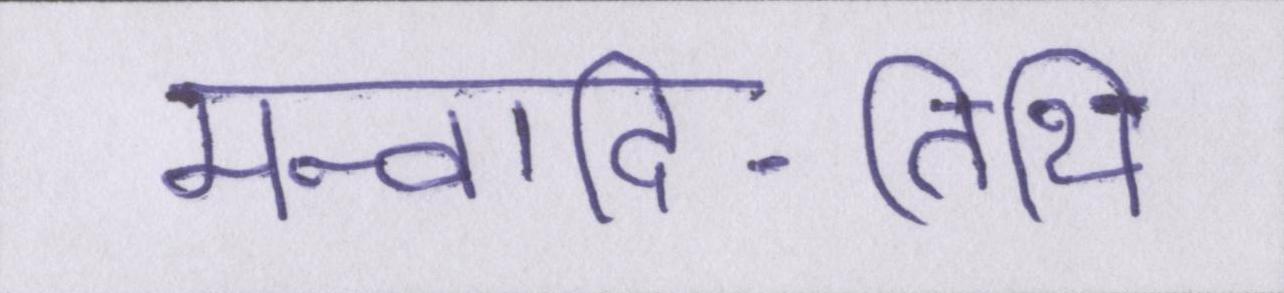 मन्वादि-तिथि